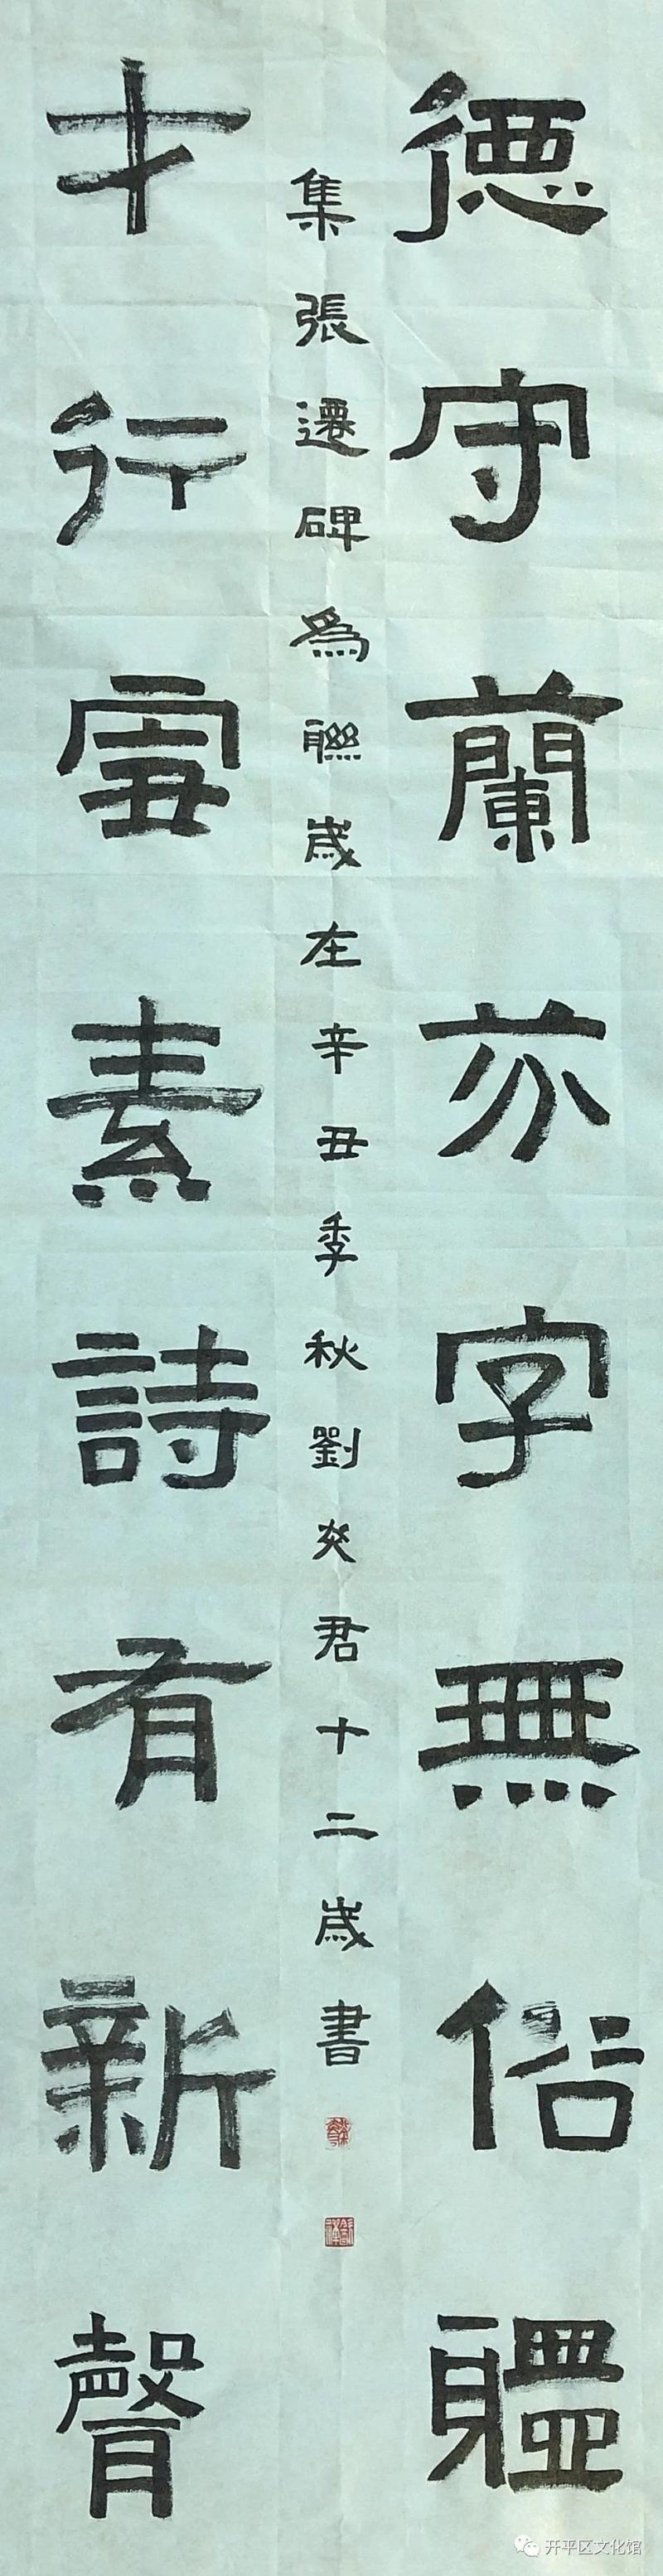 德守蘭亦字無俗軆
集張遷碑為聯歲在辛丑季秋劉炎君十二歲書
才行素詩有新聲
开平区文化馆